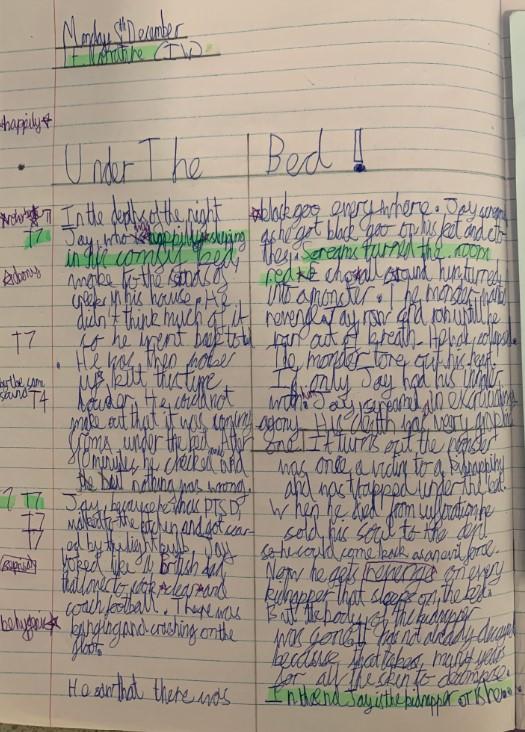 Monday 5th December
(IW)
happily
Under The Bed!
In the depths of the night
Jay, who happily
in his comfy bed,
woke to the sounds of
creeks in his house. He
didn't think much of it
so he went back to
He was then woken
up but this time
louder. He could not
make out that it was coming
from under the bed. After
10 minutes, he checked and
the bed nothing was wrong.
T7
T7
T4
T7
T7
T7
Jay, because he has PTSD,
walked to the kitchen and got scar-
ed by the light bulb. Jay
looked like a British dad
that loves to
coach football. There was
banging and crashing on the
floor.
He saw that there was
black goo everywhere. Jay
as he got black goo on his feet and
screams turned the room
red
into a monster. The monster wanted
revenge. Jay ran and ran until he
ran out of breath. He had collapsed.
The monster tore out his heart.
If only Jay had his
with him. Jay screamed in excruciating
agony. His death was very
one! It turns out the monster
was once a victim to a kidnapping
and was trapped under the bed.
When he died from
sold his soul to the devil
so he could come back as an evil force.
Now he gets revenge on every
kidnapper that sleeps on the bed.
But the body of the kidnapper
was gone. It has not already decayed
because that takes many years
for all the skin to decompose.
In the end Jay is the kidnapper or is he...